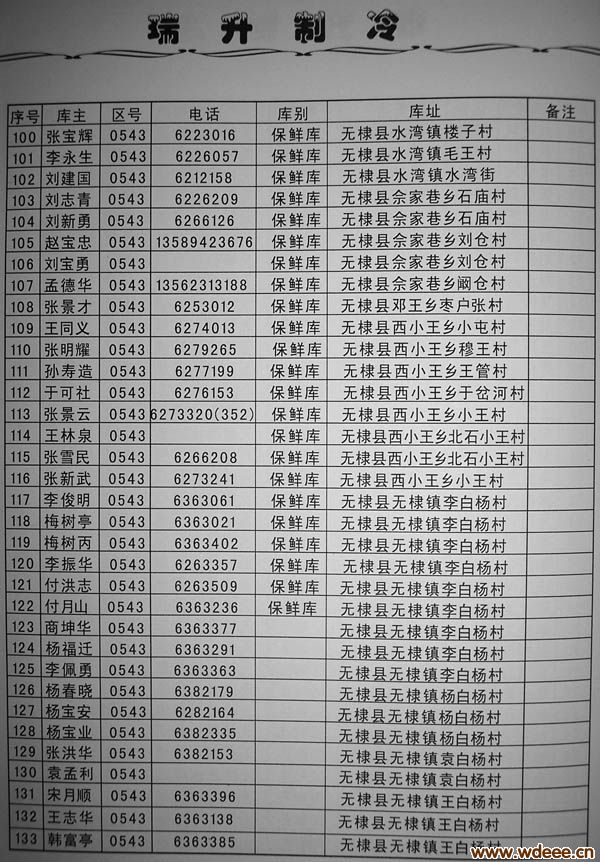 瑞升制冷
序号 库主 区号 电话 库别 库址 备注
100 张宝辉 0543 6223016 保鲜库 无棣县水湾镇楼子村
101 李永生 0543 6226057 保鲜库 无棣县水湾镇毛王村
102 刘建国 0543 6212158 保鲜库 无棣县水湾镇水湾街
103 刘志青 0543 6226209 保鲜库 无棣县佘家巷乡石庙村
104 刘新勇 0543 6266126 保鲜库 无棣县佘家巷乡石庙村
105 赵宝忠 0543 13589423676 保鲜库 无棣县佘家巷乡刘仓村
106 刘宝勇 0543 保鲜库 无棣县佘家巷乡刘仓村
107 孟德华 0543 13562313188 保鲜库 无棣县佘家巷乡阚仓村
108 张景才 0543 6253012 保鲜库 无棣县邓王乡枣户张村
109 王同义 0543 6274013 保鲜库 无棣县西小王乡小屯村
110 张明耀 0543 6279265 保鲜库 无棣县西小王乡穆王村
111 孙寿造 0543 6277199 保鲜库 无棣县西小王乡王管村
112 于可社 0543 6276153 保鲜库 无棣县西小王乡于岔河村
113 张景云 0543 6273320(352) 保鲜库 无棣县西小王乡小王村
114 王林泉 0543 保鲜库 无棣县西小王乡北石小王村
115 张雪民 0543 6266208 保鲜库 无棣县西小王乡北石小王村
116 张新武 0543 6273241 保鲜库 无棣县西小王乡小王村
117 李俊明 0543 6363061 保鲜库 无棣县无棣镇李白杨村
118 梅树亭 0543 6363021 保鲜库 无棣县无棣镇李白杨村
119 梅树丙 0543 6363402 保鲜库 无棣县无棣镇李白杨村
120 李振华 0543 6263357 保鲜库 无棣县无棣镇李白杨村
121 付洪志 0543 6263509 保鲜库 无棣县无棣镇李白杨村
122 付月山 0543 6363236 保鲜库 无棣县无棣镇李白杨村
123 商坤华 0543 6363377 无棣县无棣镇李白杨村
124 杨福迁 0543 6363291 无棣县无棣镇李白杨村
125 李佩勇 0543 6363363 无棣县无棣镇李白杨村
126 杨春晓 0543 6382179 无棣县无棣镇杨白杨村
127 杨宝安 0543 6282164 无棣县无棣镇杨白杨村
128 杨宝业 0543 6382335 无棣县无棣镇杨白杨村
129 张洪华 0543 6382153 无棣县无棣镇袁白杨村
130 袁孟利 0543 无棣县无棣镇袁白杨村
131 宋月顺 0543 6363396 无棣县无棣镇王白杨村
132 王志华 0543 6363138 无棣县无棣镇王白杨村
133 韩富亭 0543 6363385 无棣县无棣镇王白杨村
www.wdeee.cn